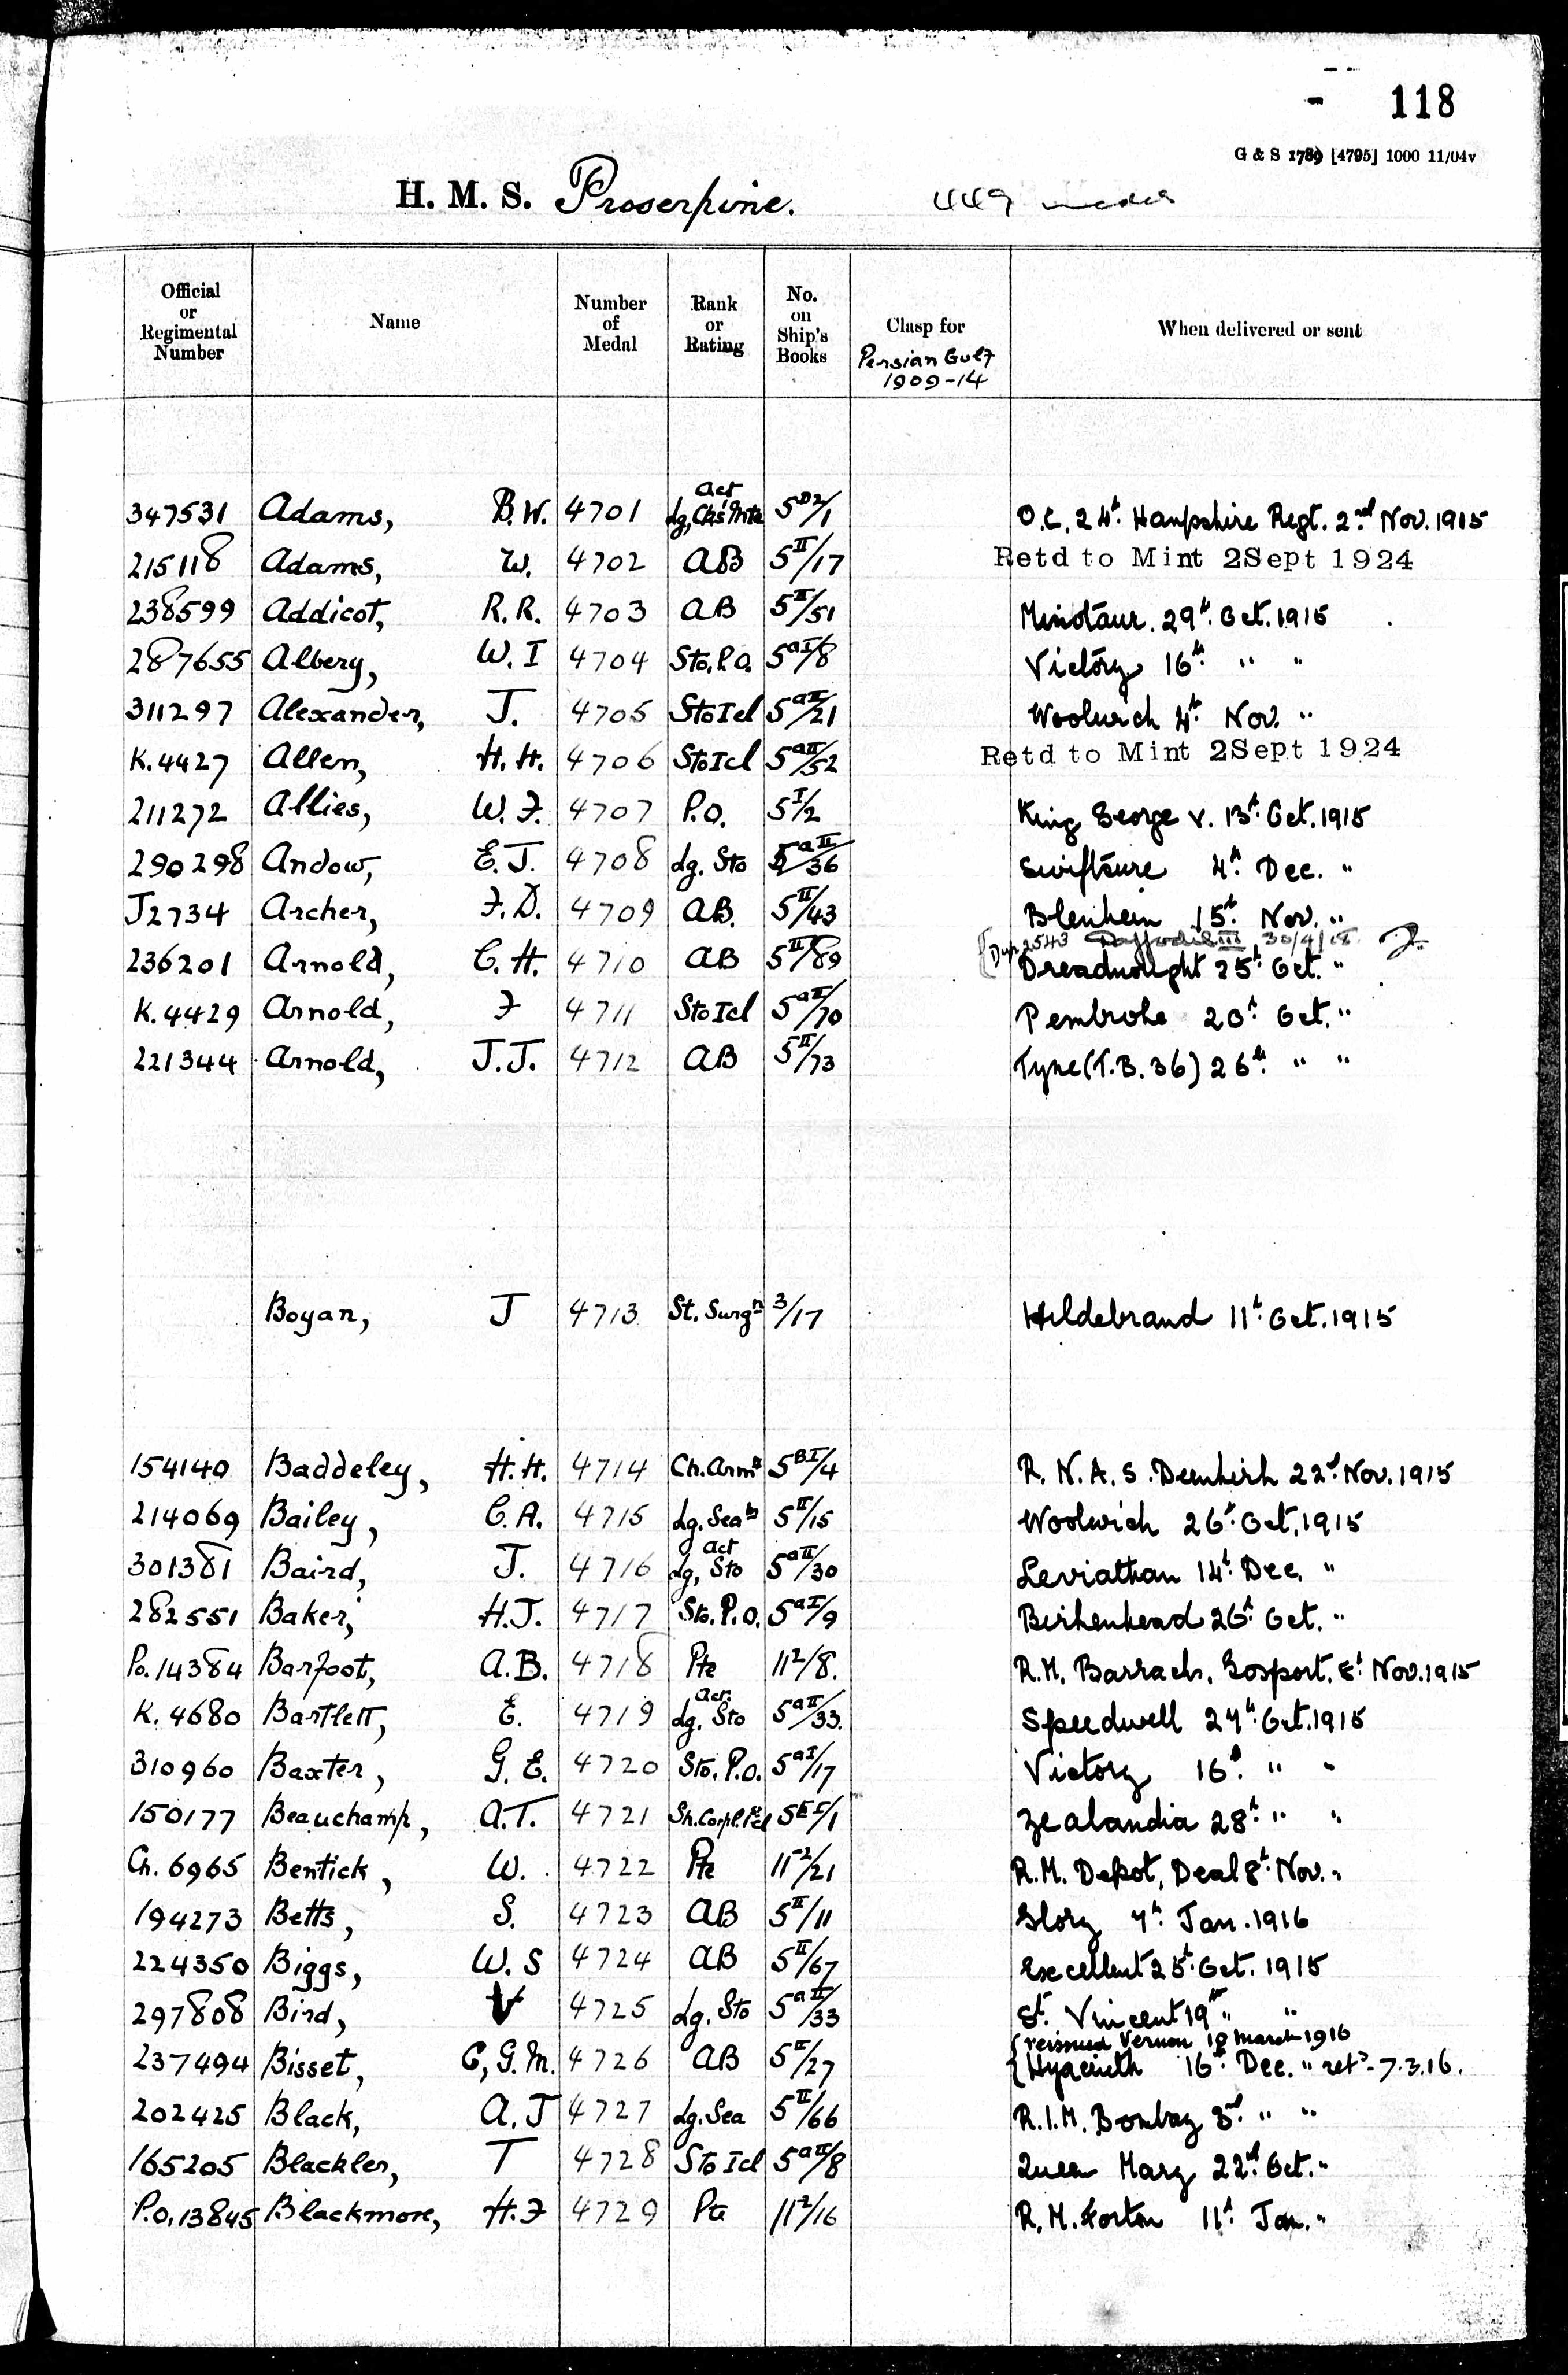 118
G & S 1789 [4795] 1000 11/04v
H. M. S. Proserpine. 449
Official or Regimental Number Name Number of Medal Rank or Rating No. on Ship's Books Clasp for Persian Gulf 1909-14 When delivered or sent
347531 Adams, B.W. 4701 act Lg, Cks Mte 5D2/1 O.C. 24th Hampshire Regt. 2nd Nov. 1915
215118 Adams, W. 4702 AB 5II/17 Retd to Mint 2Sept 1924
238599 Addicot, R.R. 4703 AB 5II/51 Minotaur. 29th Oct. 1915
287655 Albery, W.I 4704 Sto. P.O. 5aI/8 Victory 16th " "
311297 Alexander, J. 4705 Sto I cl 5aII/21 Woolwich 4th Nov. "
K.4427 Allen, H.H. 4706 Sto I cl 5aII/52 Retd to Mint 2Sept 1924
211272 Allies, W.F. 4707 P.O. 5I/2 King George V. 13th Oct. 1915
290298 Andow, E.J. 4708 Lg. Sto 5aII/36 Swiftsure 4th Dec. "
J2734 Archer, F.D. 4709 AB. 5II/43 Blenheim 15th Nov. "
Dup 2543 Daffodil III 30/4/18
236201 Arnold, C.H. 4710 AB 5II/89 Dreadnought 25th Oct. "
K.4429 Arnold, F 4711 Sto I cl 5aII/70 Pembroke 20th Oct. "
221344 Arnold, J.J. 4712 AB 5II/73 Tyne (T.B. 36) 26th " "
Boyan, J 4713 St. Surgn 3/17 Hildebrand 11th Oct. 1915
154140 Baddeley, H.H. 4714 Ch. Armr 5BI/4 R.N.A.S. Dunkirk 22nd Nov. 1915
214069 Bailey, C.A. 4715 Lg. Sea 5II/15 Woolwich 26th Oct. 1915
301381 Baird, J. 4716 act Lg, Sto 5aII/30 Leviathan 14th Dec. "
282551 Baker, H.J. 4717 Sto. P.O. 5aI/9 Birkenhead 26th Oct. "
Po.14384 Barfoot, A.B. 4718 Pte 112/8. R.M. Barracks, Gosport. 8th Nov. 1915
K.4680 Bartlett, E. 4719 act. Lg. Sto 5aII/33. Speedwell 27th Oct. 1915
310960 Baxter, G.E. 4720 Sto. P.O. 5aI/17 Victory 16th " "
150177 Beauchamp, A.T. 4721 Sh. Corpl. I cl 5EI/1 Zealandia 28th " "
Ch. 6965 Bentick, W. 4722 Pte 112/21 R.M. Depot, Deal 8th Nov. "
194273 Betts, S. 4723 AB 5II/11 Glory 7th Jan. 1916
224350 Biggs, W.S 4724 AB 5II/67 Excellent 25th Oct. 1915
297808 Bird, V 4725 Lg. Sto 5aII/33 St Vincent 19th " "
reissued Vernon 18 March 1916
237494 Bisset, C, G.M. 4726 AB 5II/27 Hyacinth 16th Dec. " retd 7.3.16.
202425 Black, A.J 4727 Lg. Sea 5II/66 R.I.M. Bombay 3rd " "
165205 Blackler, T 4728 Sto I cl 5aII/8 Queen Mary 22nd Oct. "
P.O. 13845 Blackmore, H.F 4729 Pte 112/16 R.M. Forton 11th Jan. "